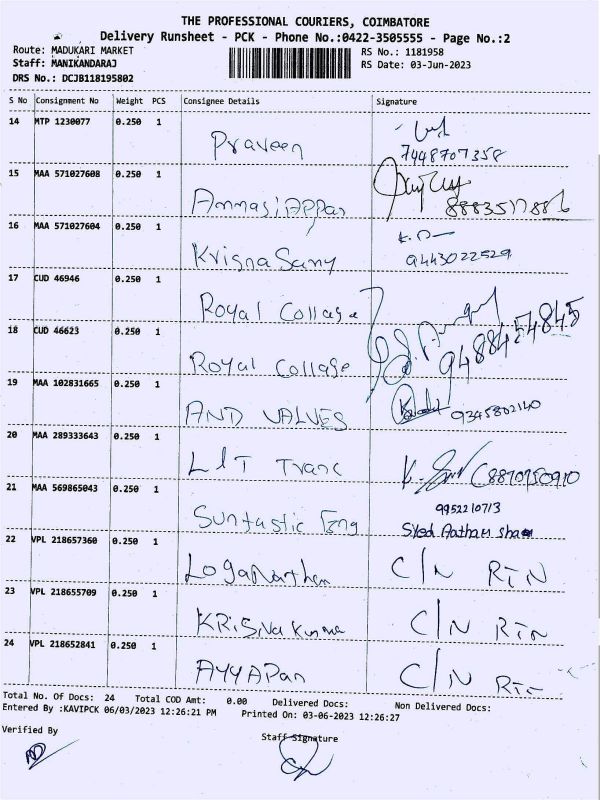 THE PROFESSIONAL COURIERS, COIMBATORE
Delivery Runsheet - PCK - Phone No.:0422-3505555 - Page No.:2
Route: MADUKARI MARKET
RS No.: 1181958
Staff: MANIKANDARAJ
RS Date: 03-Jun-2023
DRS No.: DCJB118195802
S No Consignment No Weight PCS Consignee Details Signature
14 MTP 1230077 0.250 1
Praveen 7448707358
15 MAA 571027608 0.250 1
AmmasiAppan
16 MAA 571027604 0.250 1
KrisnaSamy 9443022529
17 CUD 46946 0.250 1
Royal Collage
18 CUD 46623 0.250 1
Royal Collage 9488454845
19 MAA 102831665 0.250 1
AND VALVES 9345802140
20 MAA 289333643 0.250 1
L&T Tranc
21 MAA 569865043 0.250 1
Suntastic Eng 9952210713
Syed
22 VPL 218657360 0.250 1
Loganathan C/N RTN
23 VPL 218655709 0.250 1
KRiSivakuma C/N RTN
24 VPL 218652841 0.250 1
AYYAPan C/N RTN
Total No. Of Docs: 24 Total COD Amt: 0.00 Delivered Docs: Non Delivered Docs:
Entered By :KAVIPCK 06/03/2023 12:26:21 PM Printed On: 03-06-2023 12:26:27
Verified By
Staff Signature